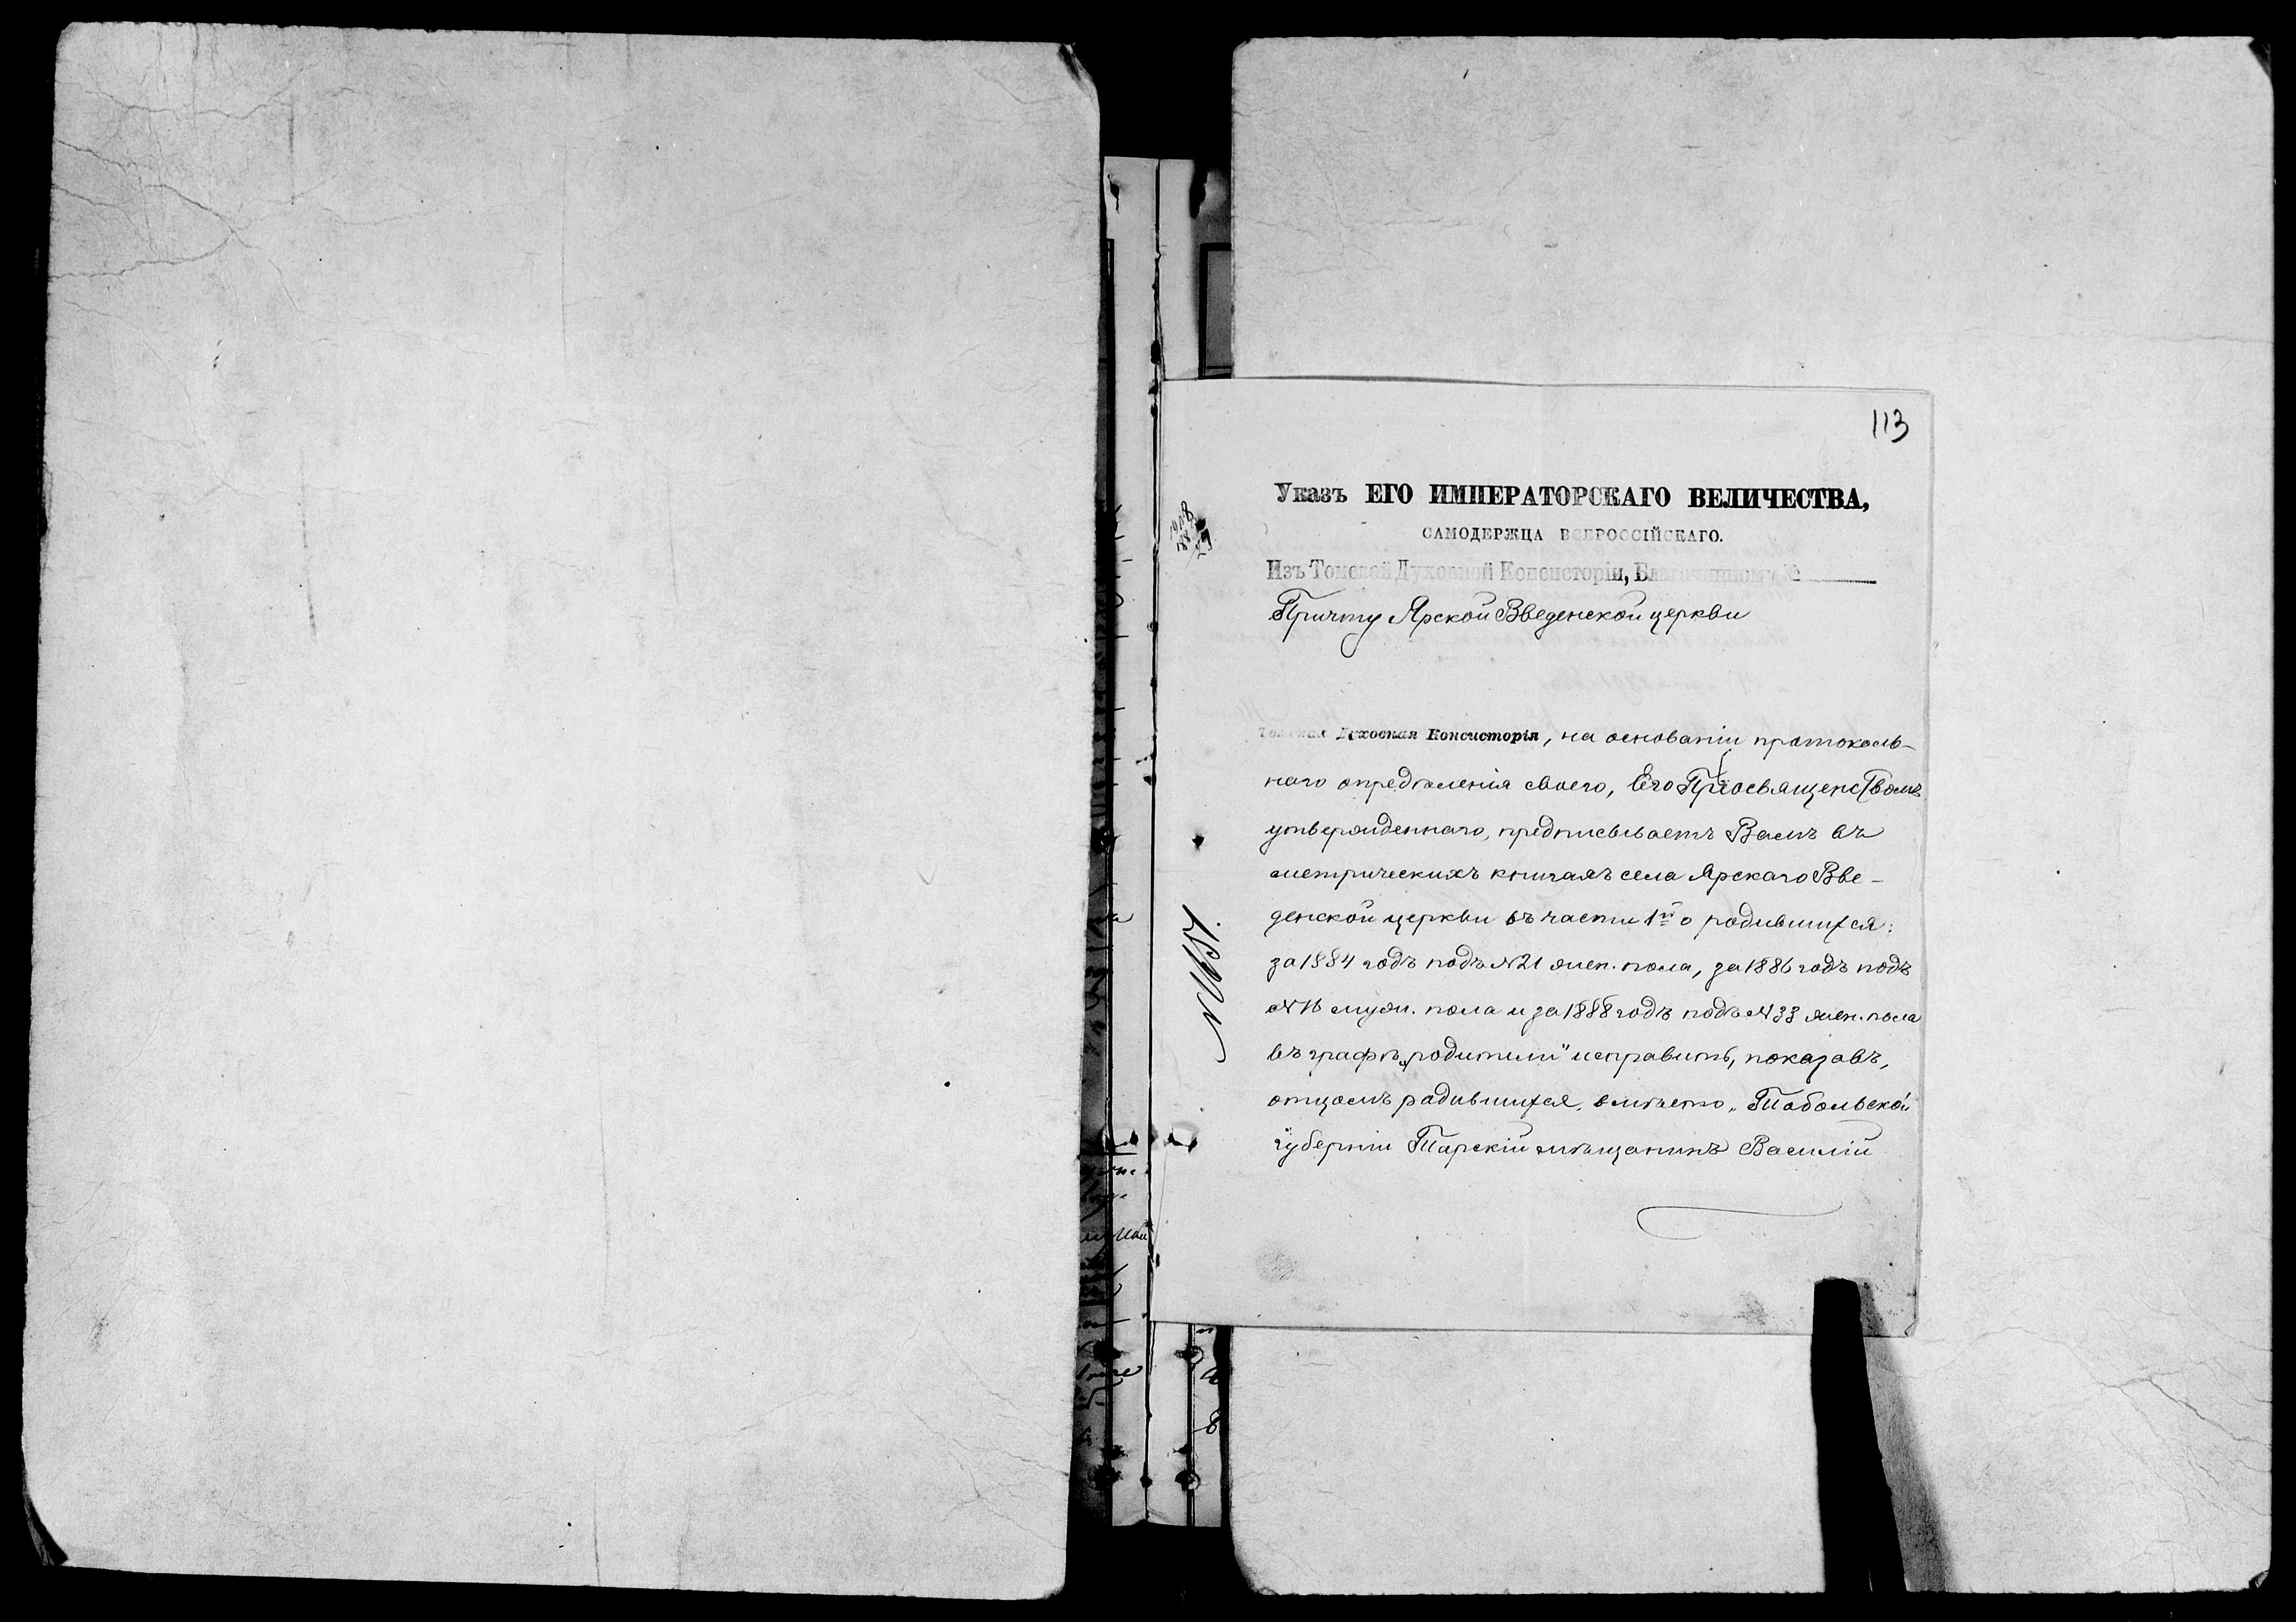 113
Указъ ЕГО ИМПЕРАТОРСКАГО ВЕЛИЧЕСТВА,
САМОДЕРЖЦА ВСЕРОССІЙСКАГО.
Изъ Томской Духовной Консисторіи, Благочинному №
Причту Ярской Введенской церкви
Томская Духовная Консисторія, на основаніи протоколь-
наго опредѣленія своего, Его Преосвященствомъ
утвержденнаго, предписываетъ Вамъ въ
метрическихъ книгахъ села Ярскаго Вве-
денской церкви въ части 1й о родившихся:
за 1884 годъ подъ №21 жен. пола, за 1886 годъ подъ
№16 муж. пола и за 1888 годъ подъ №33 жен. пола
въ графѣ „родители" исправить, показавъ,
отцомъ родившихся, вмѣсто „Тобольской
губерніи Тарскій мѣщанинъ Василій